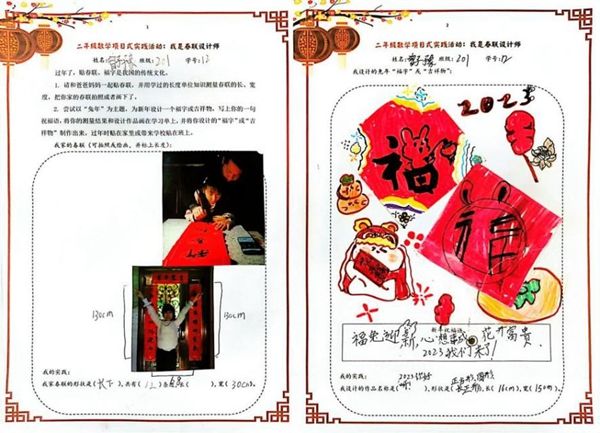 1
二年级数学项目式实践活动：我是春联设计师
姓名： 班级：201 学号：12
过年了，贴春联、福字是我国的传统文化。
1. 请和爸爸妈妈一起贴春联，并用学过的长度单位知识测量春联的长、宽
度，把你家的春联拍照或者画下了。
2. 尝试以“兔年”为主题，为新年设计一个福字或吉祥物，写上你的一句
祝福语，将你的测量结果和设计作品画在学习单上，并将你设计的“福字”或“吉
祥物”制作出来，过年时贴在家里或带来学校贴在班上。
我家的春联（可拍照或绘画，并标上长度）：
130cm
130cm
我的实践：
我家春联的形状是（长方），共有（ ）条，长（ ），宽（30cm）。
2
二年级数学项目式实践活动：我是春联设计师
姓名： 班级：201 学号：12
我设计的兔年“福字”或“吉祥物”：
2023
福
福
新年祝福语：
福兔迎新，心想事成 花开富贵.
2023我们来了!
我的实践：
2023你好
正方形，圆形
我设计的作品名称是（啊!），形状是（长方形），长（16cm），宽（15cm）。